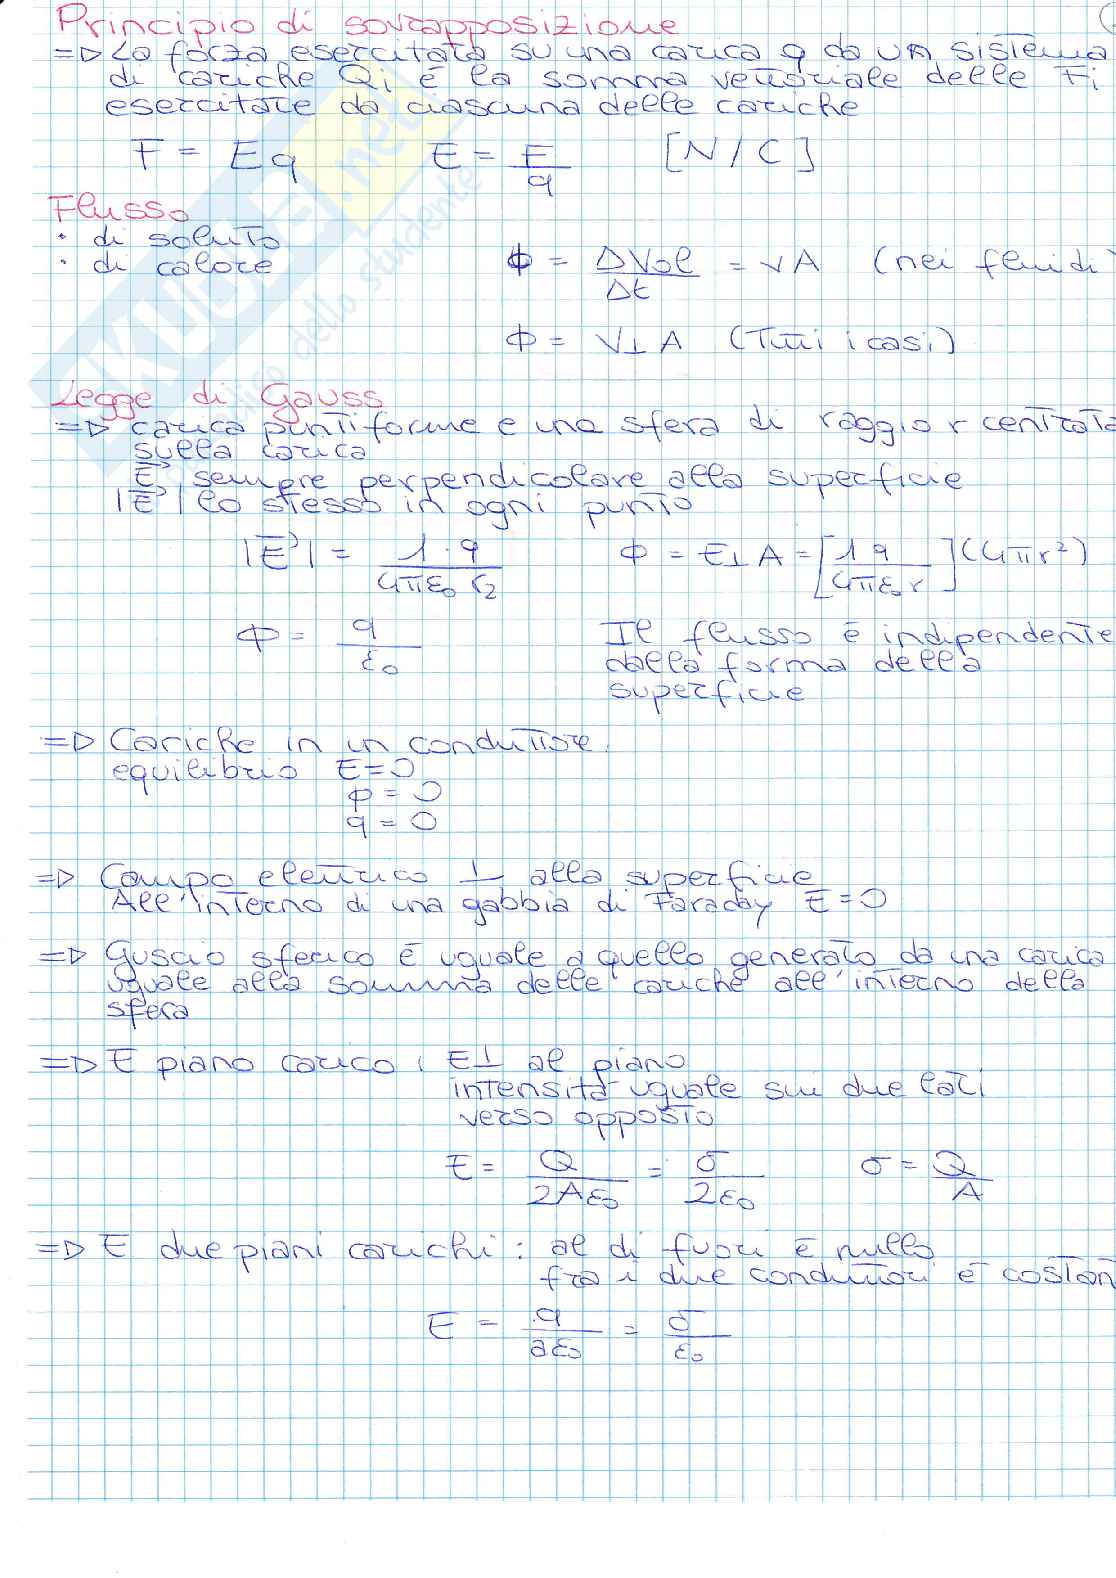 Principio di sovrapposizione
=> La forza esercitata su una carica q da un sistema
di cariche Qi è la somma vettoriale delle Fi
esercitate da ciascuna delle cariche
F = Eq E = F/q [N/C]
Flusso
· di soluto
· di calore
Φ = ΔVol/Δt = vA (nei fluidi)
Φ = v⊥ A (Tutti i casi)
Legge di Gauss
=> carica puntiforme e una sfera di raggio r centrata
sulla carica
E⃗ sempre perpendicolare alla superficie
|E⃗| lo stesso in ogni punto
|E⃗| = 1·q/4πε₀ r₂ Φ = E⊥ A = [1 q/4πε₀ r](4πr²)
Φ = q/ε₀ Il flusso è indipendente
dalla forma della
superficie
=> Cariche in un conduttore.
equilibrio E=0
Φ = 0
q = 0
=> Campo elettrico ⊥ alla superficie
All'interno di una gabbia di Faraday E=0
=> Guscio sferico è uguale a quello generato da una carica
uguale alla somma delle cariche all'interno della
sfera
=> E piano carico: E⊥ al piano
intensità uguale sui due lati
verso opposto
E = Q/2Aε₀ = σ/2ε₀ σ = Q/A
=> E due piani carichi: al di fuori è nullo
fra i due conduttori è costan
E = q/aε₀ = σ/ε₀
SKUOLA.net
dello studente